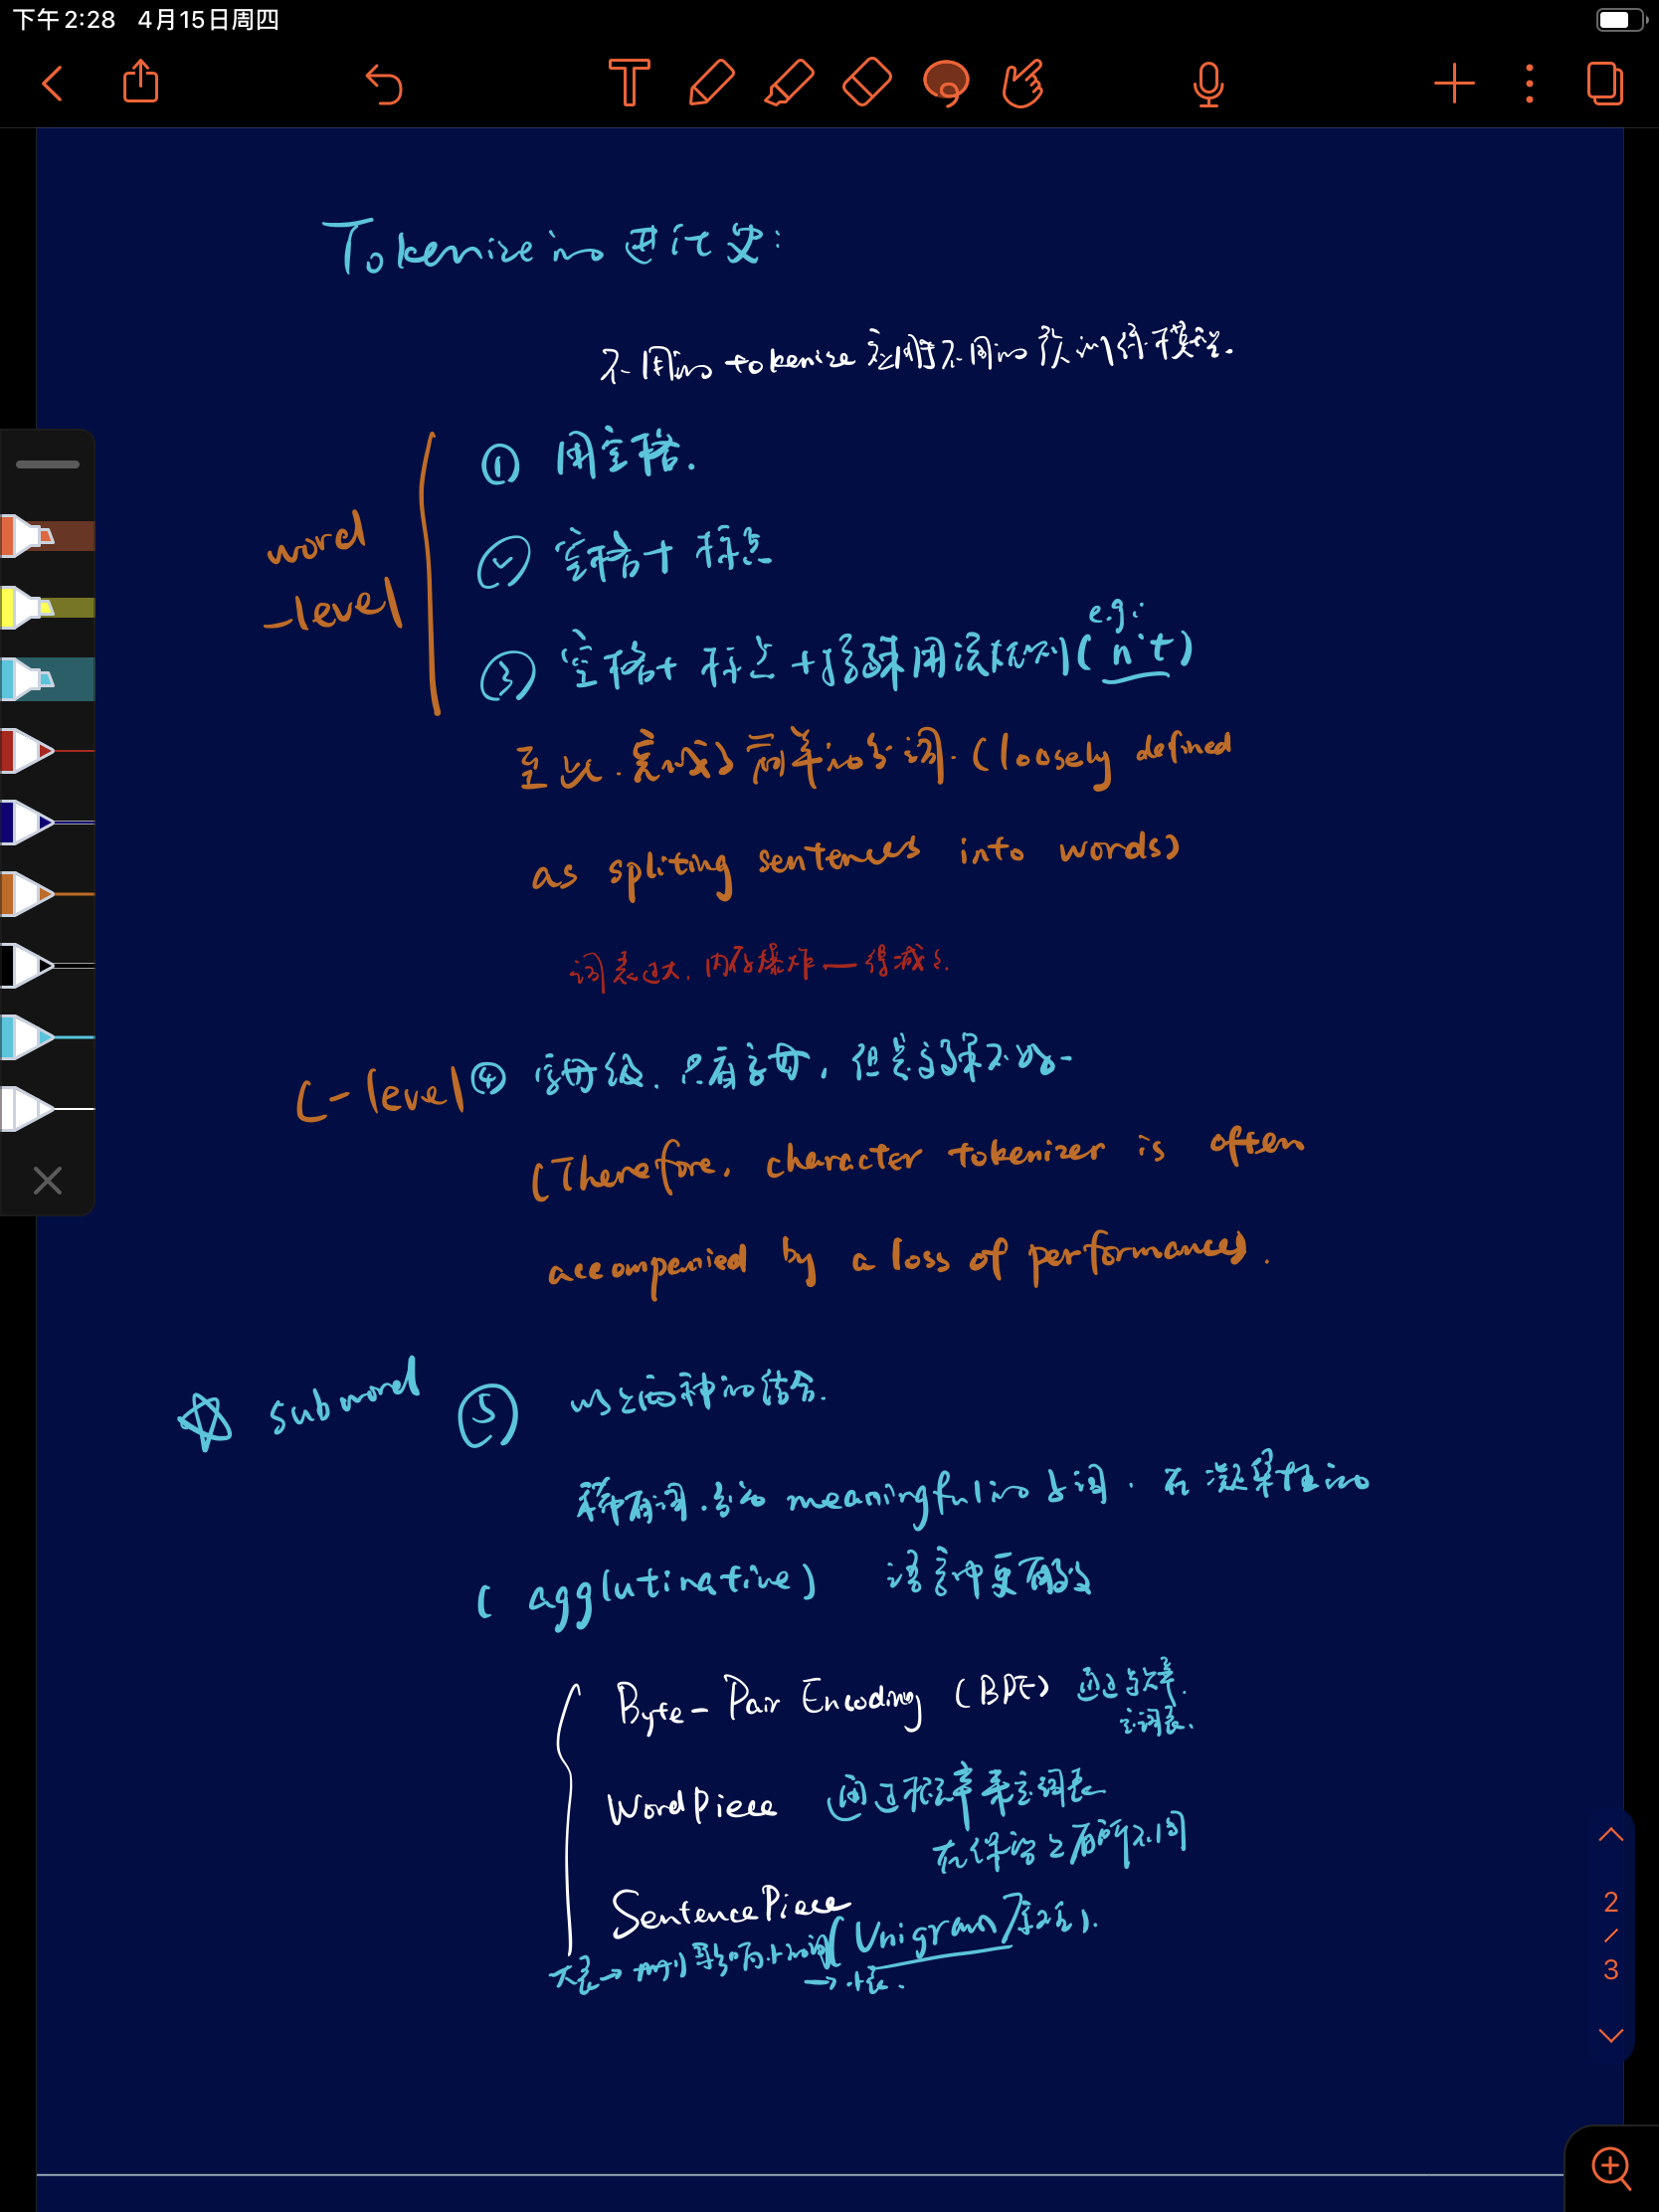 下午2:28 4月15日周四
Tokenize的进化史:
不同的tokenize应用于不同的预训练模型.
① 用空格.
② 空格+标点
word
-level
e.g:
③ 空格+标点+特殊用法规则(n't)
至此.完成了简单的分词.(loosely defined
as spliting sentences into words)
词表过大.内存爆炸—得减小.
C-level ④ 字母级.只有字母,但是效果不好.
(Therefore, character tokenizer is often
accompenied by a loss of performances).
subword ⑤ 以上两种的结合.
稀有词.分为meaningful的子词.在凝聚性的
(agglutinative) 语言中更有效
Byte-Pair Encoding (BPE) 通过频率.
词表.
WordPiece 通过概率来定词表
在保留之有所不同
SentencePiece
(Unigram 算法).
大表→
→小表.
2
/
3